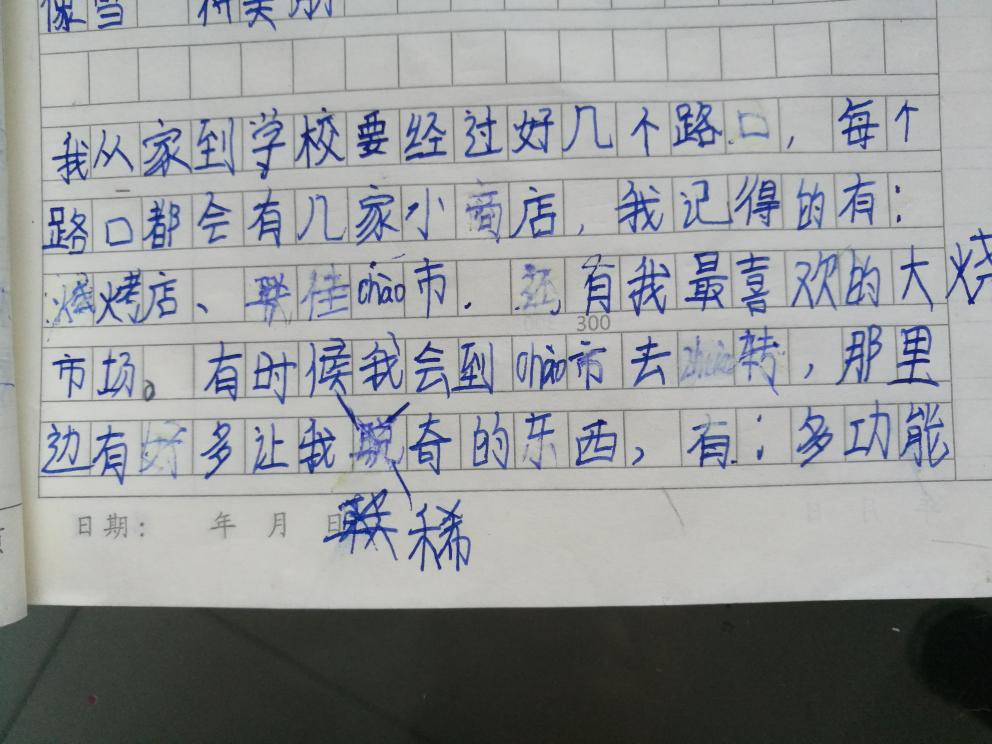 像雪
我从家到学校要经过好几个路口，每个
路口都会有几家小商店，我记得的有：
烧烤店、联佳chāo市．还有我最喜欢的大烧
300
市场。有时候我会到chāo市去转，那里
边有好多让我奇的东西，有：多功能
日期： 年 月 日
联稀